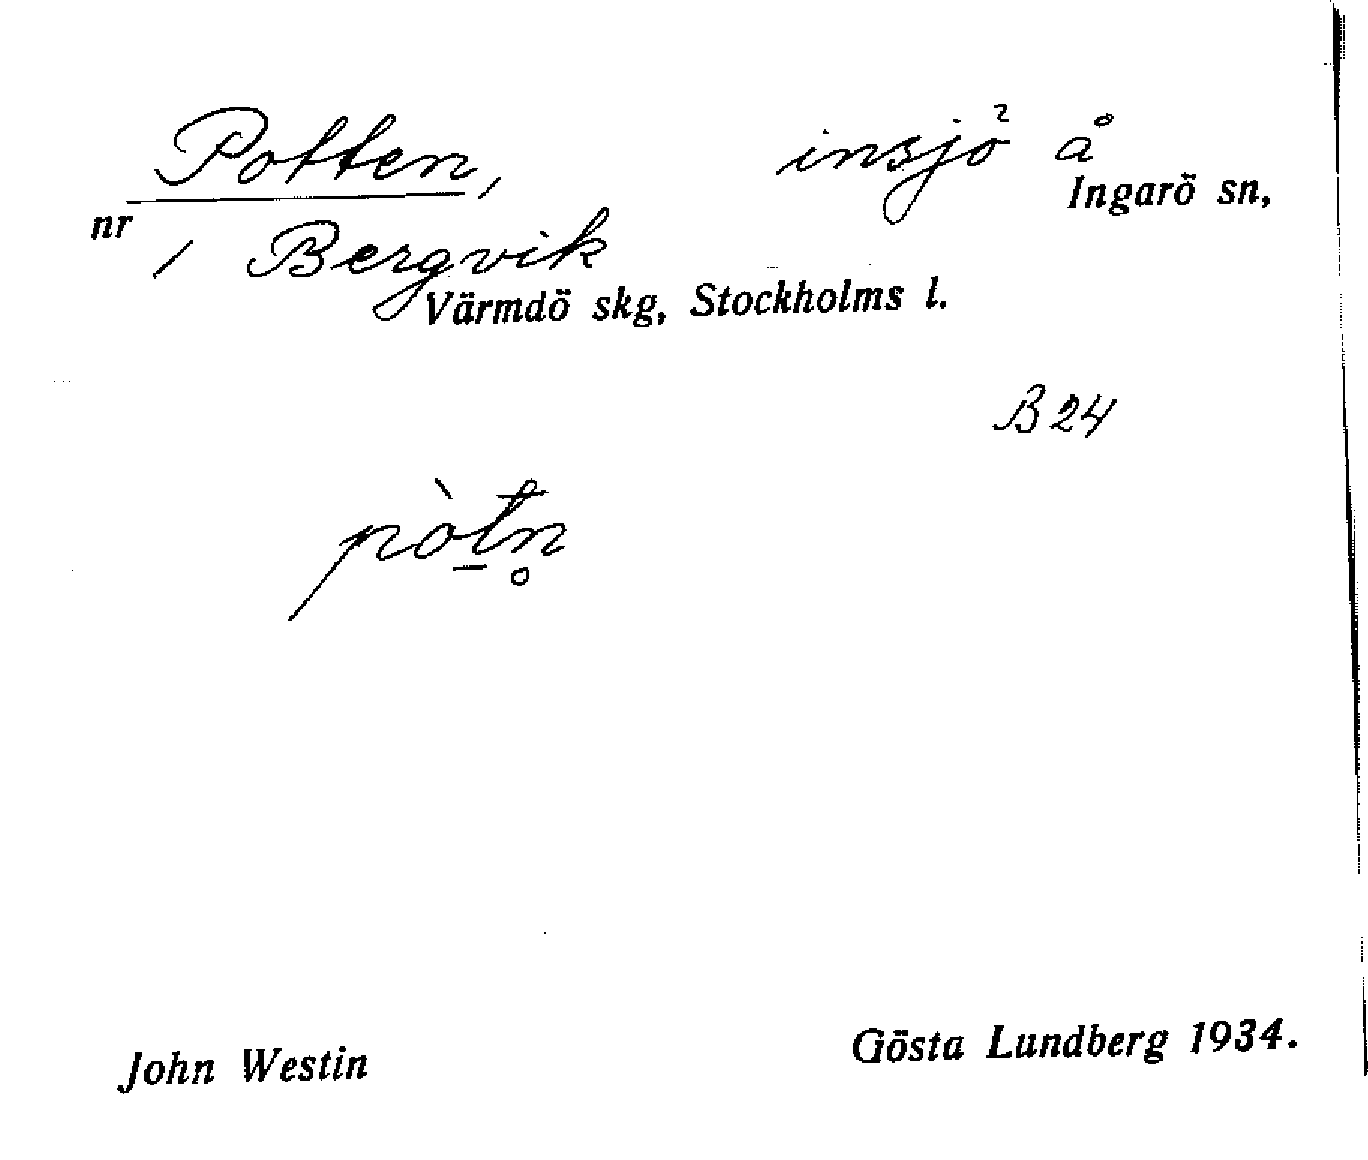 Potten, insjö å
Ingarö sn,
nr 1 Bergvik
Värmdö skg, Stockholms l.
B 24
pòt̠n̥
John Westin Gösta Lundberg 1934.